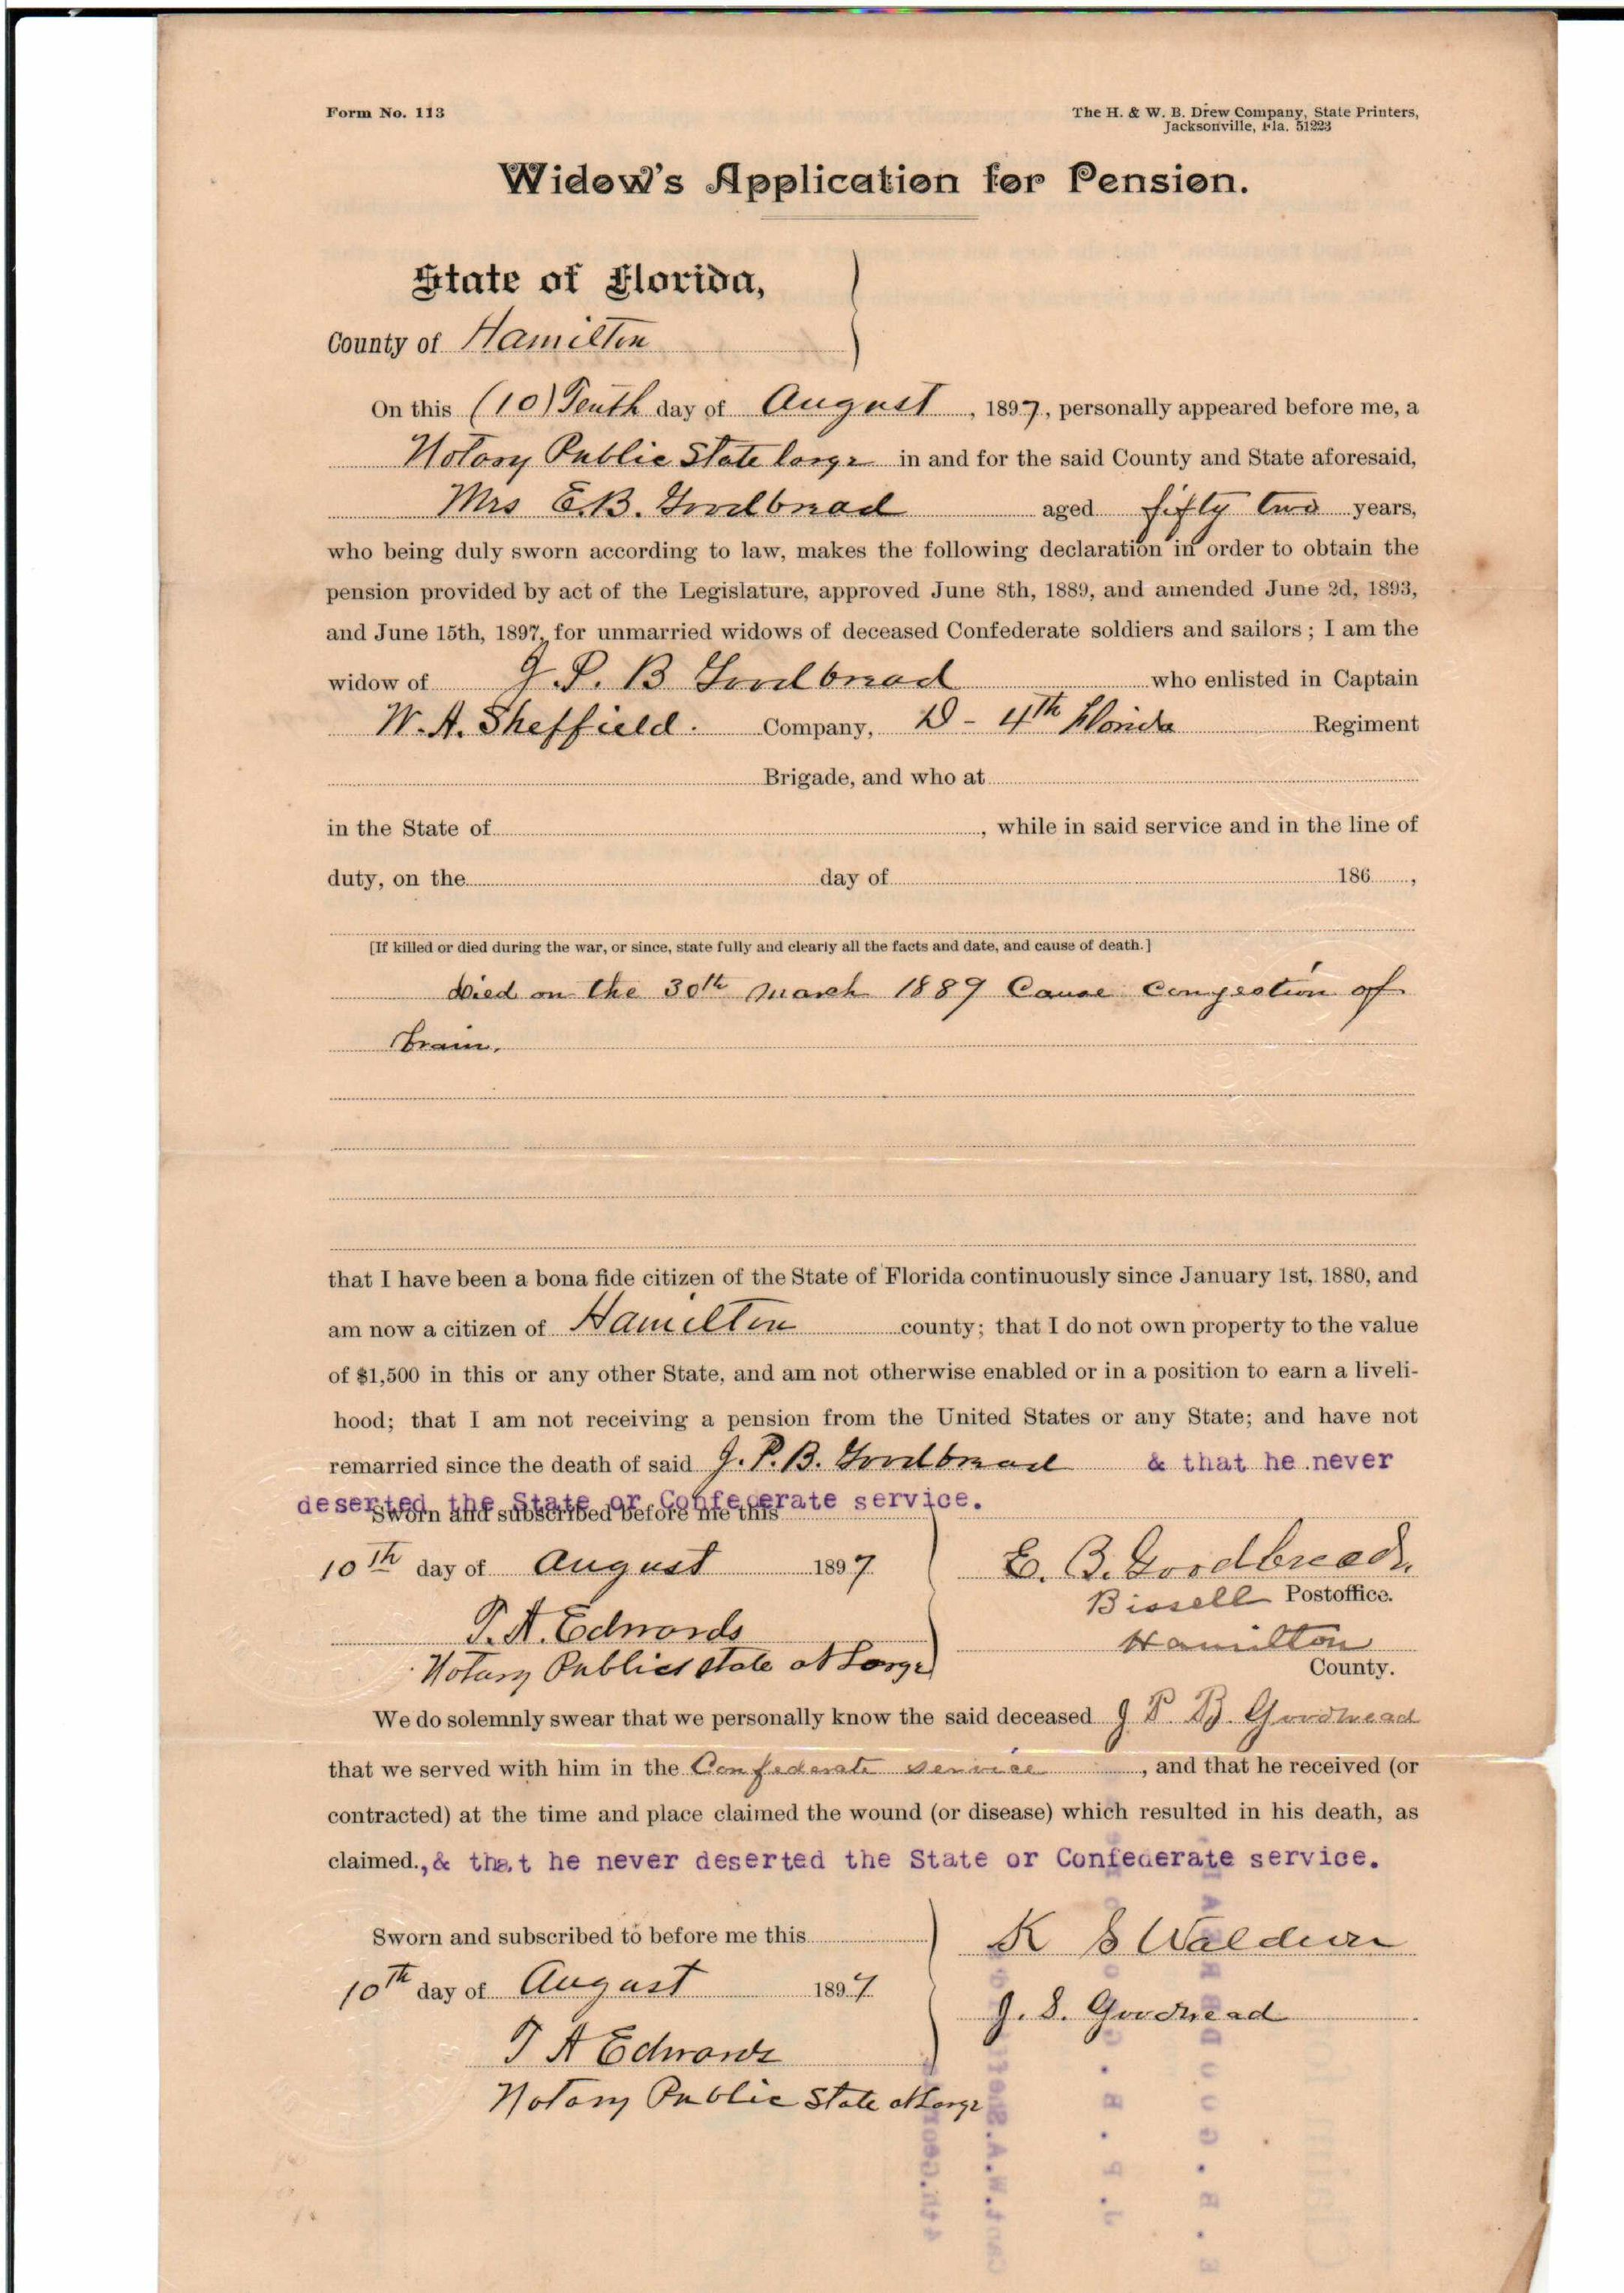 Form No. 113
The H. & W. B. Drew Company, State Printers,
Jacksonville, Fla. 51223
Widow's Application for Pension.
State of Florida,
County of Hamilton
On this (10) Tenth day of August, 1897, personally appeared before me, a
Notary Public State large in and for the said County and State aforesaid,
Mrs E.B. Goodbread aged fifty two years,
who being duly sworn according to law, makes the following declaration in order to obtain the
pension provided by act of the Legislature, approved June 8th, 1889, and amended June 2d, 1893,
and June 15th, 1897, for unmarried widows of deceased Confederate soldiers and sailors; I am the
widow of J. P. B Goodbread who enlisted in Captain
W. A. Sheffield. Company, D - 4th Florida Regiment
Brigade, and who at
in the State of , while in said service and in the line of
duty, on the day of 186 ,
[If killed or died during the war, or since, state fully and clearly all the facts and date, and cause of death.]
died on the 30th march 1889 Cause Congestion of
brain.
that I have been a bona fide citizen of the State of Florida continuously since January 1st, 1880, and
am now a citizen of Hamilton county; that I do not own property to the value
of $1,500 in this or any other State, and am not otherwise enabled or in a position to earn a liveli-
hood; that I am not receiving a pension from the United States or any State; and have not
remarried since the death of said J. P. B. Goodbread & that he never
deserted the State or Confederate service.
Sworn and subscribed before me this
10th day of August 1897
E. B. Goodbread
Bissell Postoffice.
T. A. Edwards
Hamilton
Notary Public State at Large
County.
We do solemnly swear that we personally know the said deceased J P. B. Goodbread
that we served with him in the Confederate service, and that he received (or
contracted) at the time and place claimed the wound (or disease) which resulted in his death, as
claimed., & that he never deserted the State or Confederate service.
Sworn and subscribed to before me this
K S Waldron
10th day of August 1897
J. S. Goodbread
T A Edwards
Notary Public State at Large